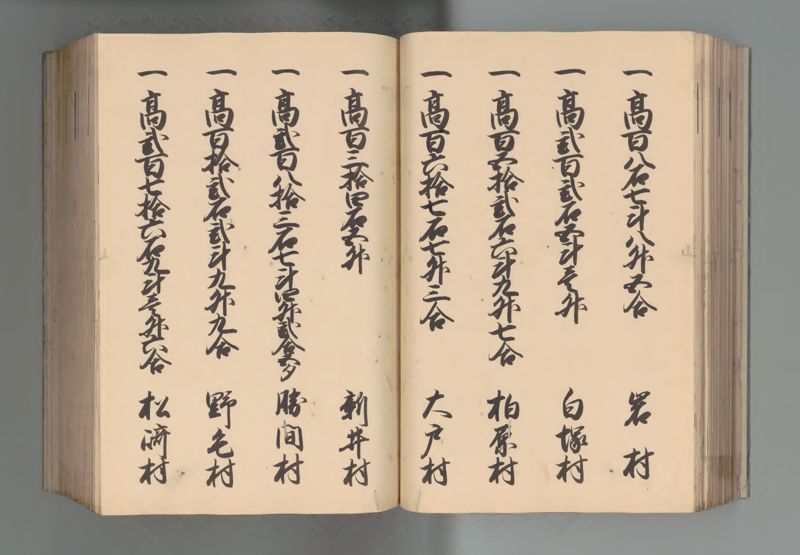 一 高百八石七斗八升五合 岩村
一 高弐百弐石五斗壱升 白塚村
一 高百五拾弐石六斗九升七合 柏原村
一 高百六拾七石七升三合 大戸村
一 高百三拾四石五升 新井村
一 高弐百八拾三石七斗四升弐合五夕 勝間村
一 高百拾弐石弐斗九升九合 野毛村
一 高弐百七拾六石九斗壱升六合 松 村